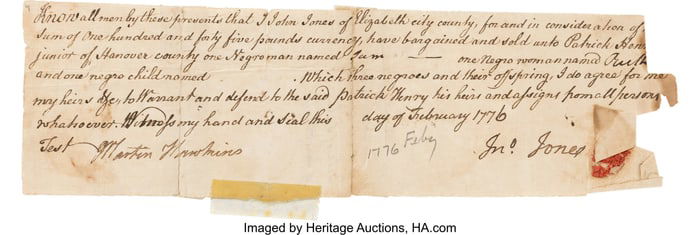 Know all men by these presents that I John Jones of Elizabeth city county, for and in consideration of
sum of One hundred and forty five pounds currency, have bargained and sold unto Patrick Hen
junior of Hanover county one Negro man named Sam — one Negro woman named Ruth
and one negro child named . Which three negroes and their offspring, I do agree for me
my heirs &c, to Warrant and defend to the said Patrick Henry his heirs and assigns from all persons
whatsoever. Witness my hand and seal this day of February 1776
Test Martin Hawkins
1776 Feby
Jno. Jones
Imaged by Heritage Auctions, HA.com